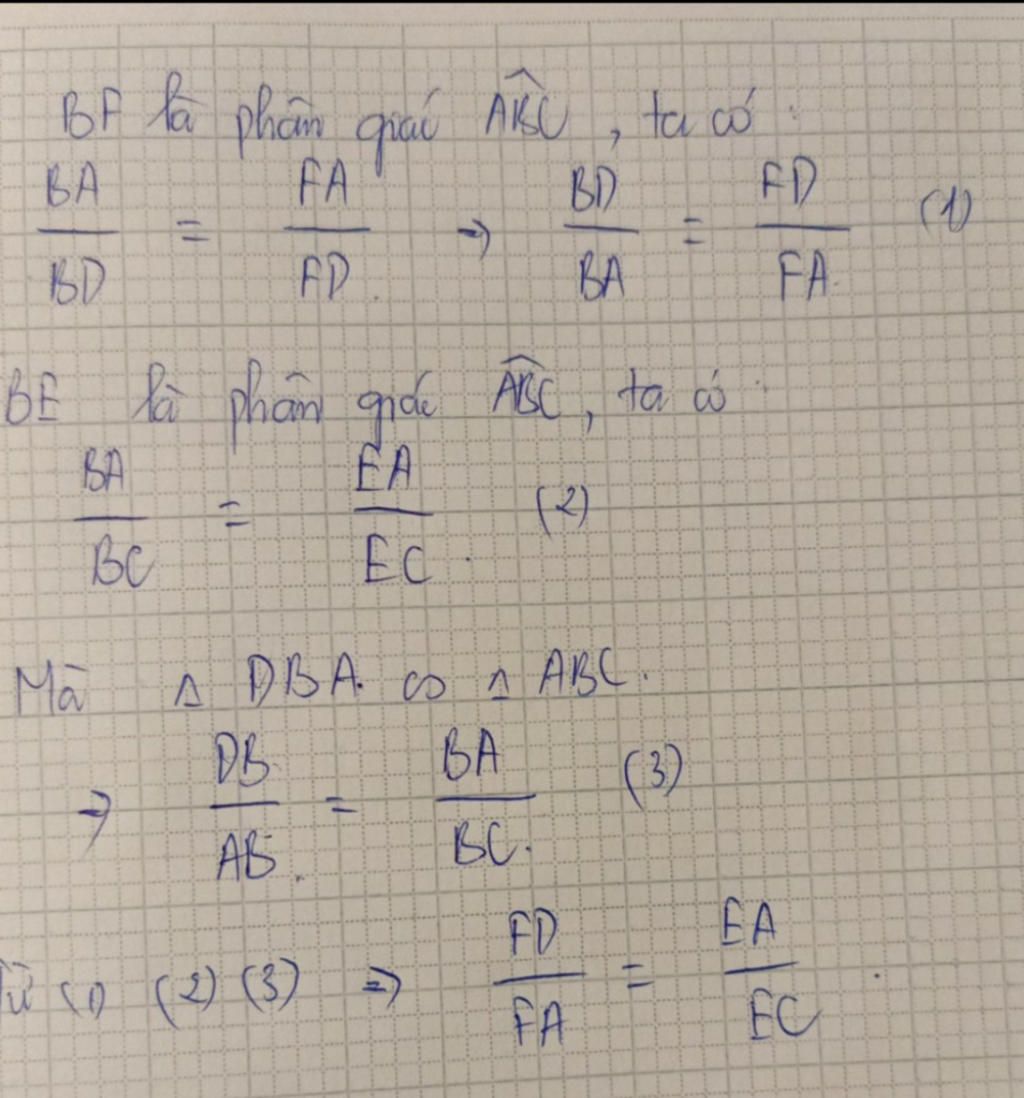 BF là phân giác ABC, ta có:
BA/BD = FA/FD. => BD/BA = FD/FA. (1)
BE là phân giác ABC, ta có:
BA/BC = EA/EC. (2)
Mà Δ DBA. ∽ Δ ABC.
=> DB/AB. = BA/BC. (3)
Từ (1) (2) (3) => FD/FA = EA/EC.